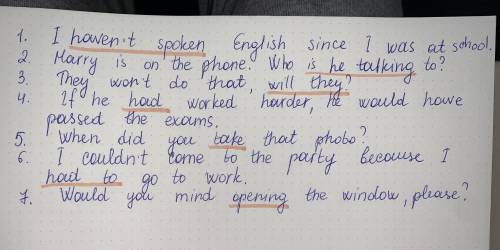 1. I haven't spoken English since I was at school.
2. Harry is on the phone. Who is he talking to?
3. They won't do that, will they?
4. If he had worked harder, he would have
passed the exams.
5. When did you take that photo?
6. I couldn't come to the party because I
had to go to work.
7. Would you mind opening the window, please?